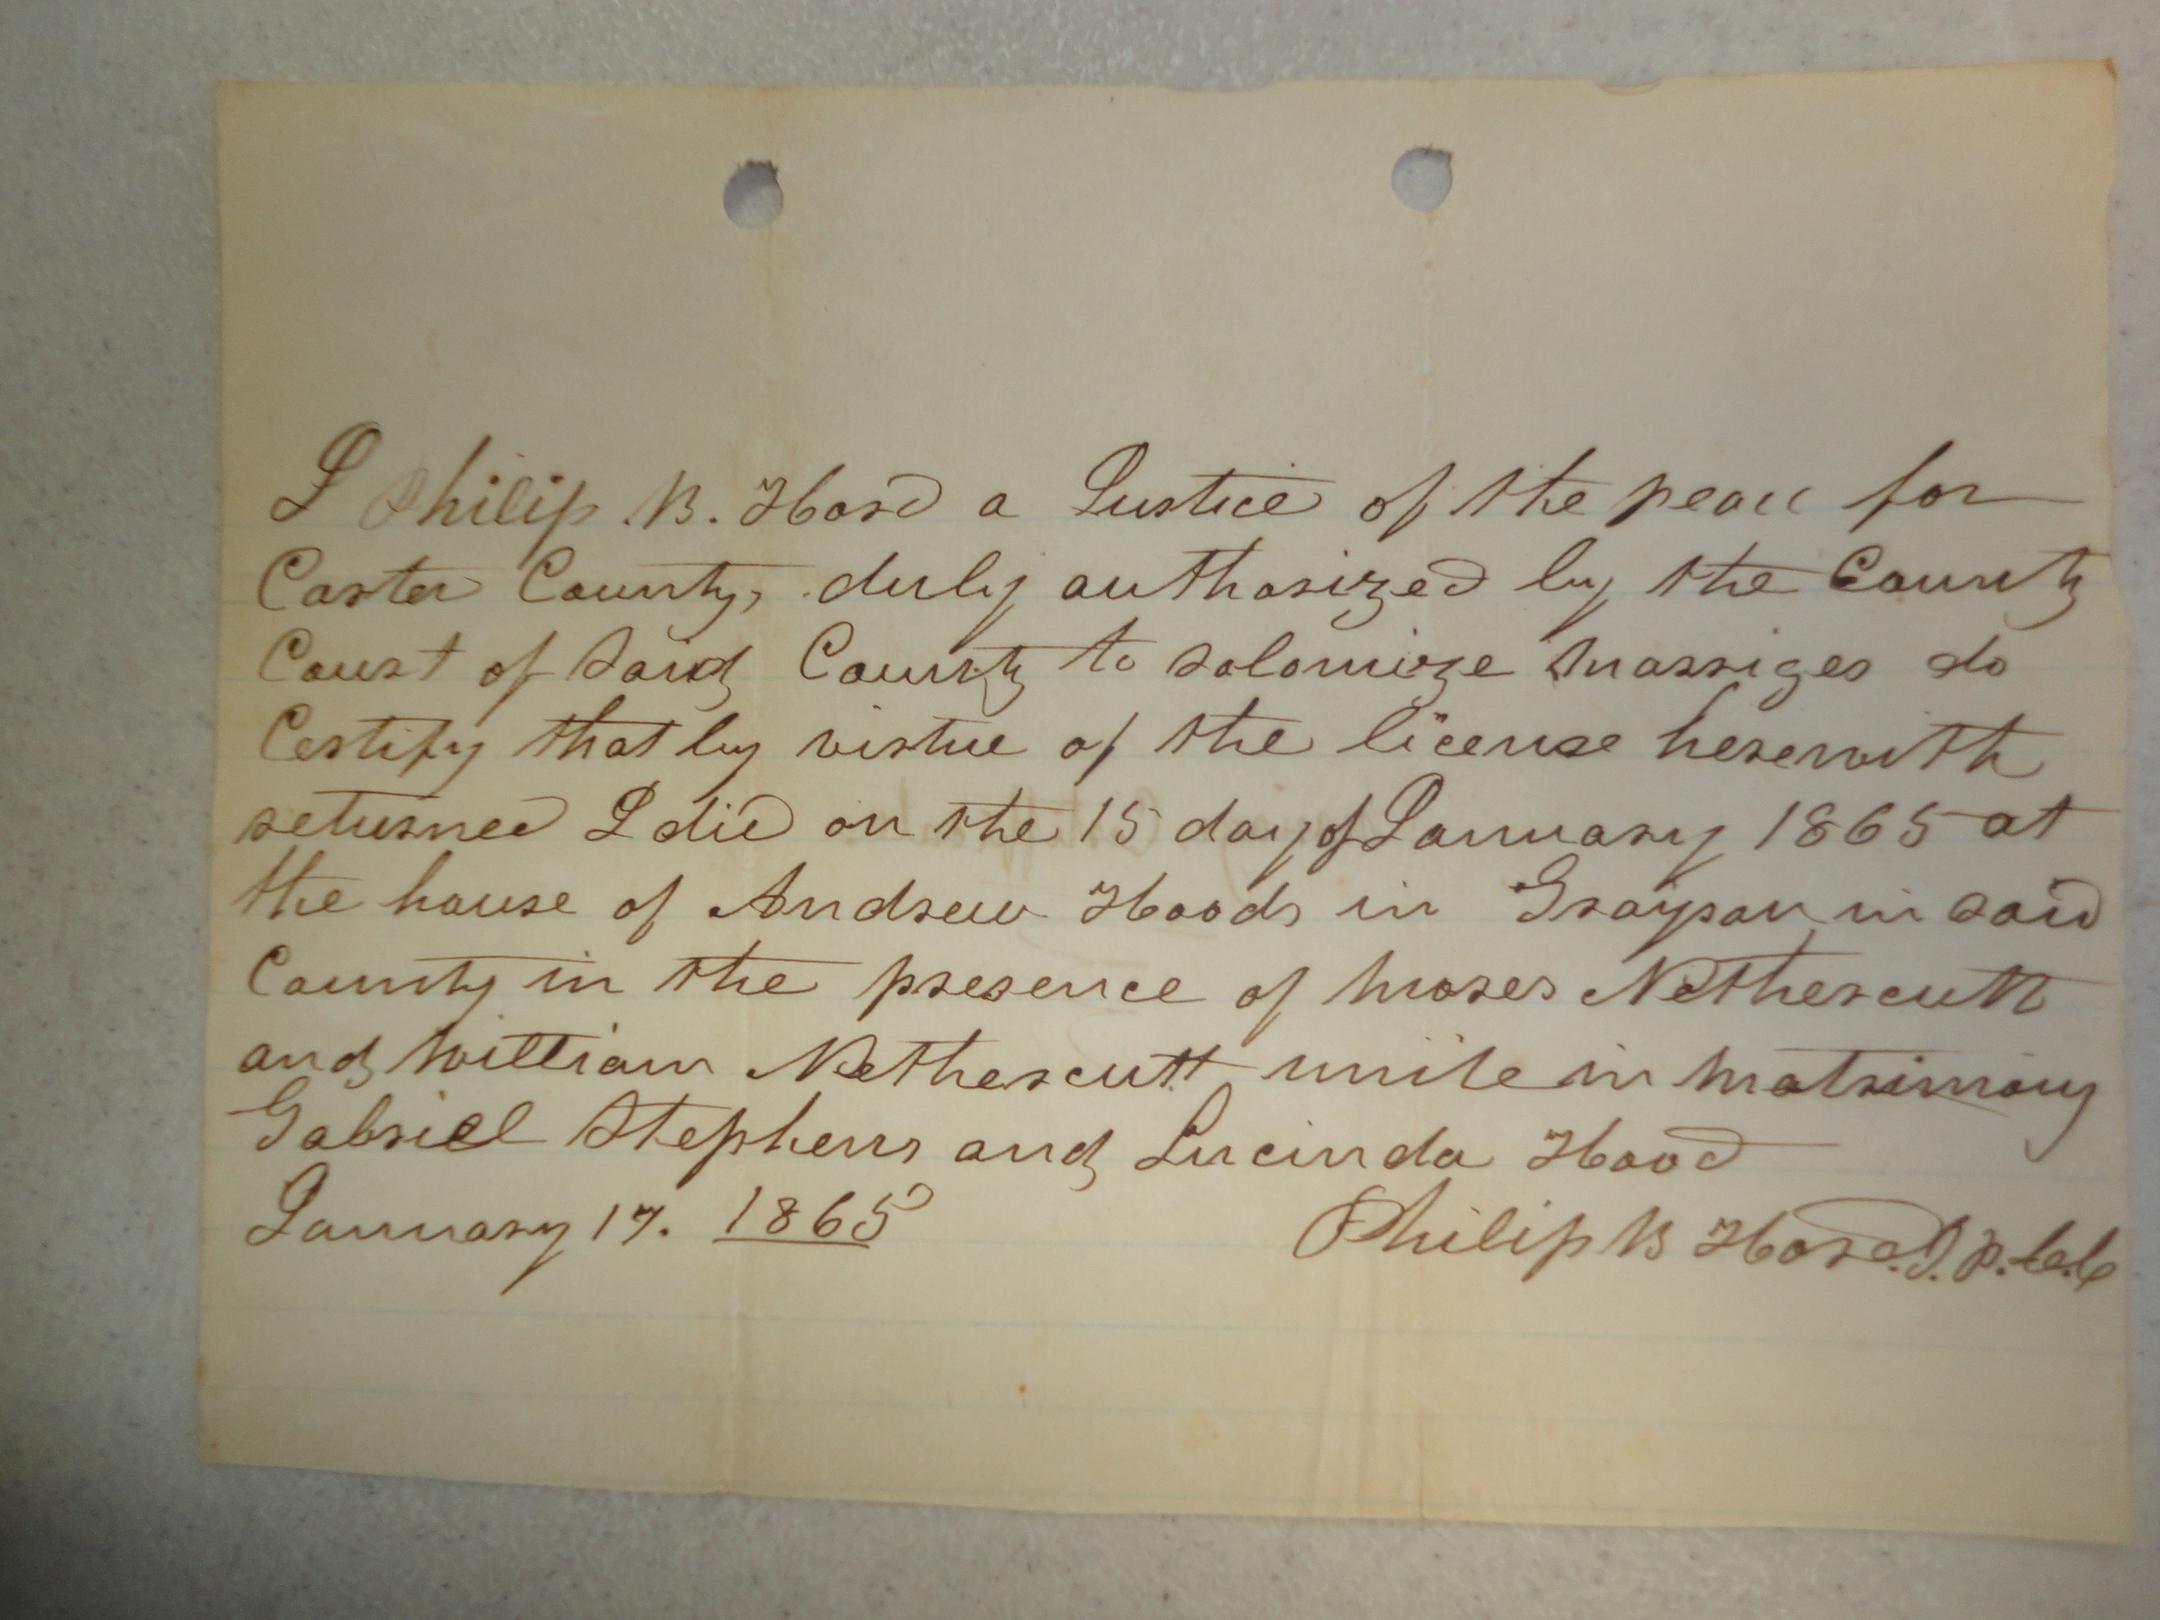 I Philip B. Hord a Justice of the peace for
Carter County, duly authorized by the County
Court of Said County to solomize marriges do
Certify that by virtue of the license herewith
returned I did on the 15 day of January 1865 at
the house of Andrew Hoods in Grayson in said
County in the presence of Moses Nethercutt
and William Nethercutt unite in Matrimony
Gabriel Stephens and Lucinda Hood
January 17. 1865
Philip B Hord. J. P. C. C